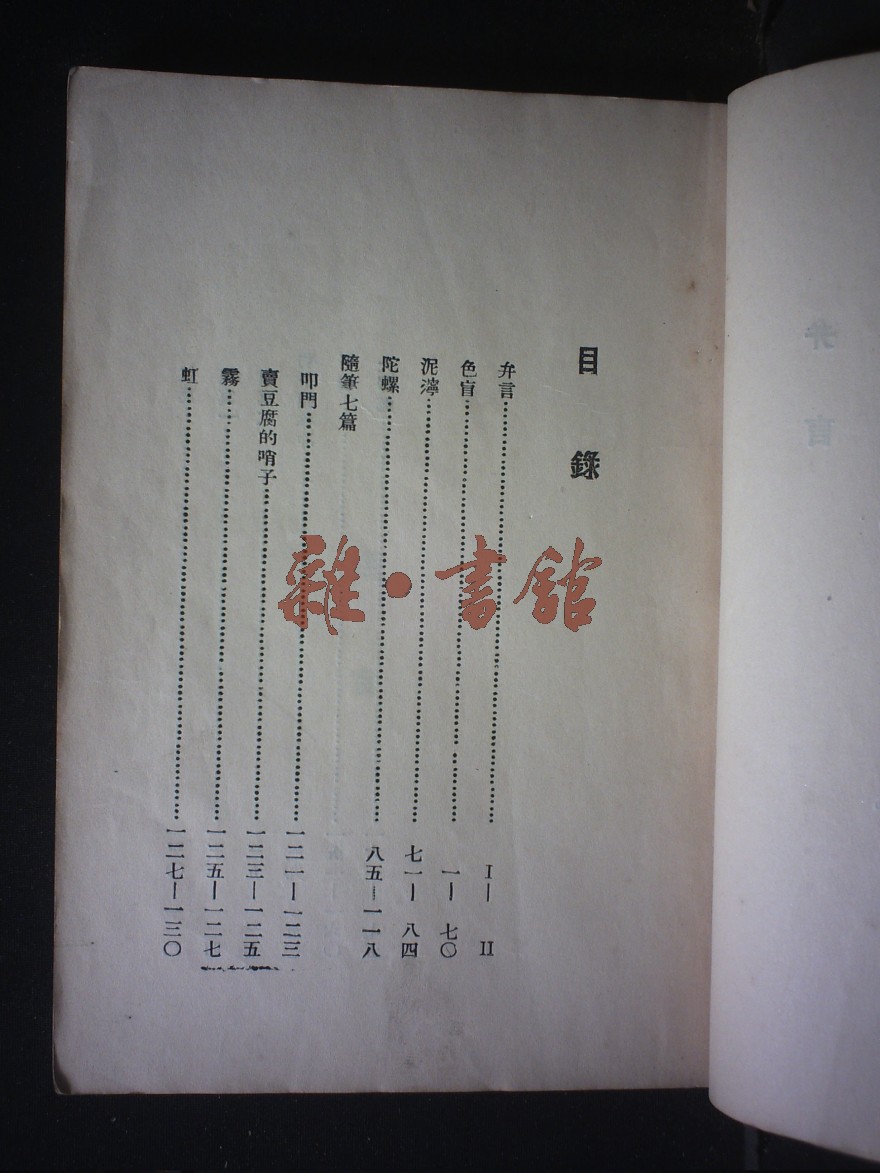 目錄
弁言……I—II
色盲……一—七〇
泥濘……七一—八四
陀螺……八五—一一八
隨筆七篇
叩門……一二一—一二三
賣豆腐的哨子……一二三—一二五
霧……一二五—一二七
虹……一二七—一三〇
雜·書館
弁言